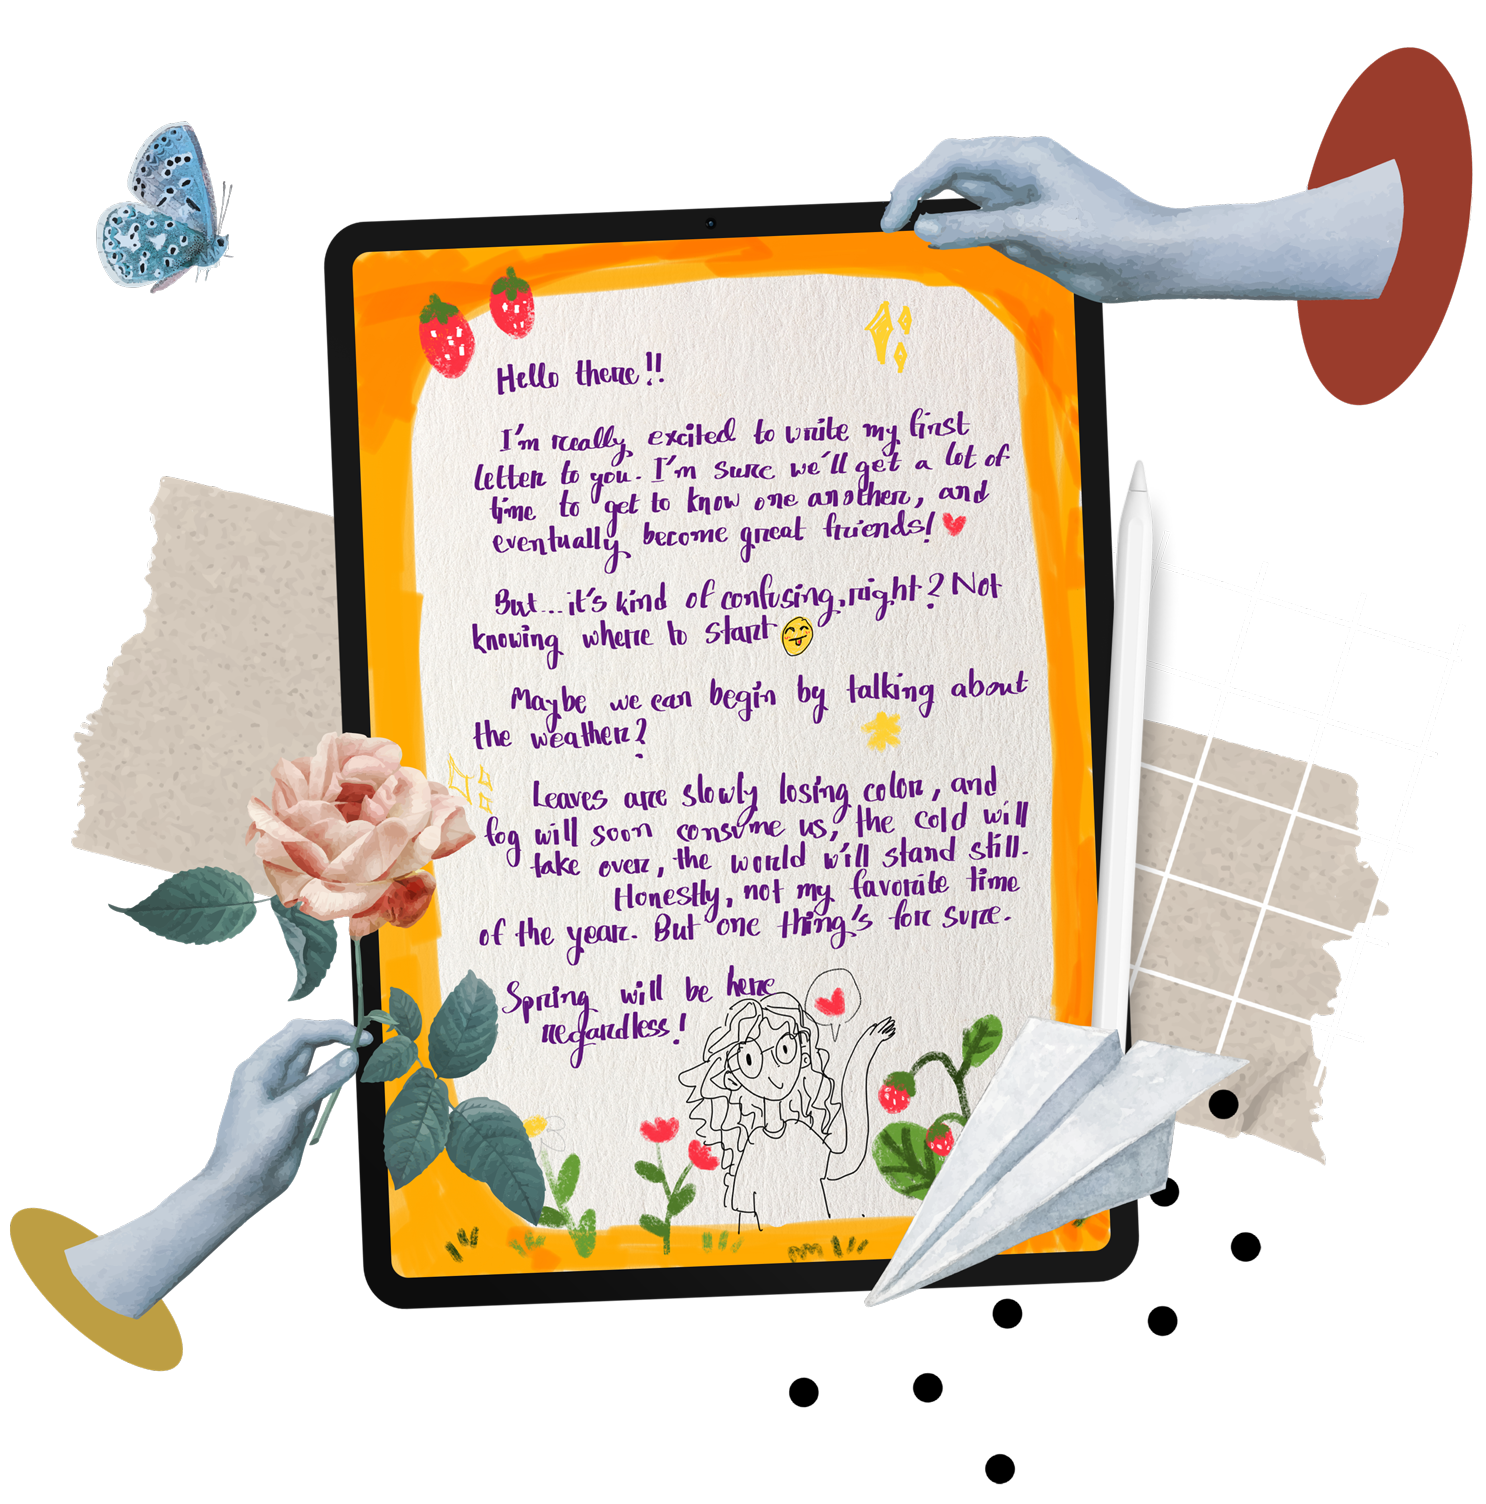 Hello there!!
I'm really excited to write my first
letter to you. I'm sure we'll get a lot of
time to get to know one another, and
eventually become great friends!
But...it's kind of confusing, right? Not
knowing where to start
Maybe we can begin by talking about
the weather?
Leaves are slowly losing color, and
fog will soon consume us, the cold will
take over, the world will stand still.
Honestly, not my favorite time
of the year. But one thing's for sure.
Spring will be here
regardless!